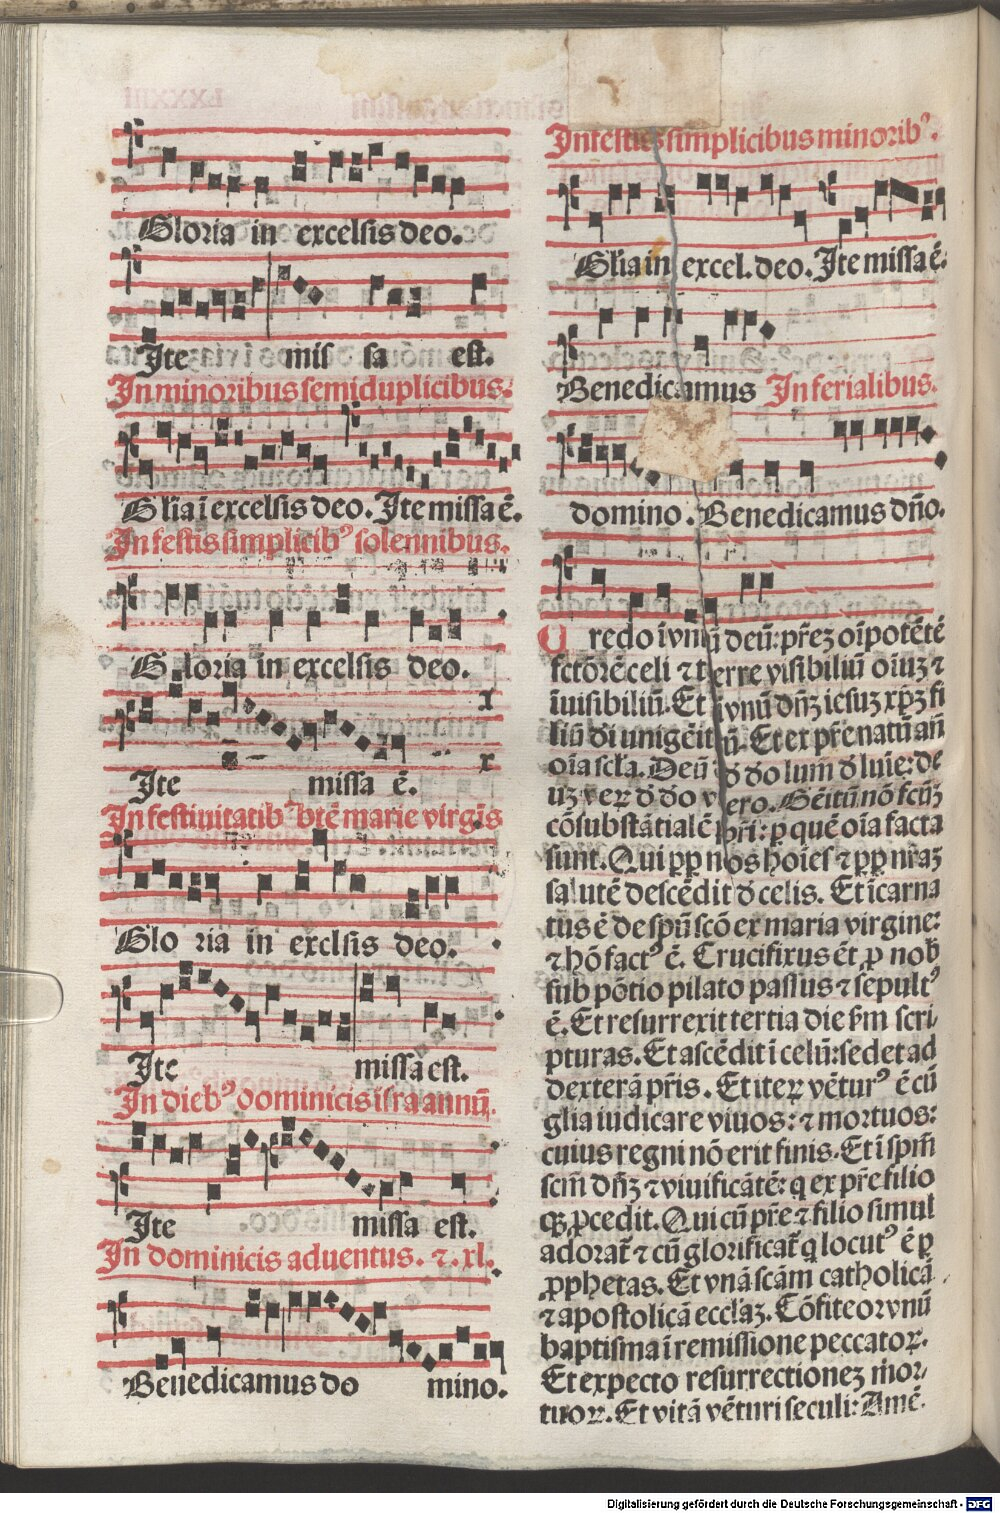 Gloria in excelsis deo.
Ite mis sa est.
In minoribus semiduplicibus.
Gl̃ia ĩ excelsis deo. Ite missa ẽ.
In festis simplicibꝰ solennibus.
Gloria in excelsis deo.
Ite missa ẽ.
In festiuitatib᾿ btẽ marie virgĩs
Glo ria in exclsis deo.
Ite missa est.
In diebꝰ dominicis ifra annũ.
Ite missa est.
In dominicis aduentus. ⁊. xl.
Benedicamus do mino.
In festis simplicibus minoribꝰ.
Gl̃ia in excel. deo. Ite missa ẽ.
Benedicamus In ferialibus.
domino. Benedicamus dño.
Credo ĩ vnũ deũ: pr̃eꝫ oĩpotẽtẽ
fctõrẽ celi ⁊ terre visibiliũ oĩuꝫ ⁊
ĩuisibiliũ. Et ĩ vnũ dñꝫ iesuꝫ xp̃ꝫ fi
liũ di unigẽitũ. Et ex pr̃e natũ añ
oĩa scl̃a. Deũ d̃ do lum̃ d̃ luĩe: de
uꝫ veꝝ d̃ do vero. Gẽitũ nõ fcũꝫ
cõsubstãtialẽ pr̃i: ꝑ quẽ oĩa facta
sunt. Qui pp̱ nos hoĩes ⁊ pp̱ nr̃aꝫ
salutẽ descẽdit d̃ celis. Et ĩcarna
tus ẽ de spũ scõ ex maria virgine:
⁊ hõ factꝰ ẽ. Crucifixus ẽt ꝓ nob̃
sub põtio pilato passus ⁊ sepultꝰ
ẽ. Et resurrexit tertia die s̃m scri-
pturas. Et ascẽdit ĩ celũ: sedet ad
dexterã pr̃is. Et iteꝝ vẽturꝰ ẽ cũ
gl̃ia iudicare viuos: ⁊ mortuos:
cuius regni nõ erit finis. Et ĩ spm̃
scm̃ dñꝫ ⁊ viuificãtẽ: q ex pr̃e filio
qꝫ ꝓcedit. Qui cũ pr̃e ⁊ filio simul
adorat̃ ⁊ cũ glorificat̃ q̃ locutꝰ ẽ ꝑ
ꝓphetas. Et vnã scãm catholicã
⁊ apostolicã eccl̃aꝫ. Cõfiteor vnũ
baptisma ĩ remissione peccatoꝝ.
Et expecto resurrectioneꝫ mor-
tuoꝝ. Et vitã vẽturi seculi: Amẽ.
Digitalisierung gefördert durch die Deutsche Forschungsgemeinschaft - DFG